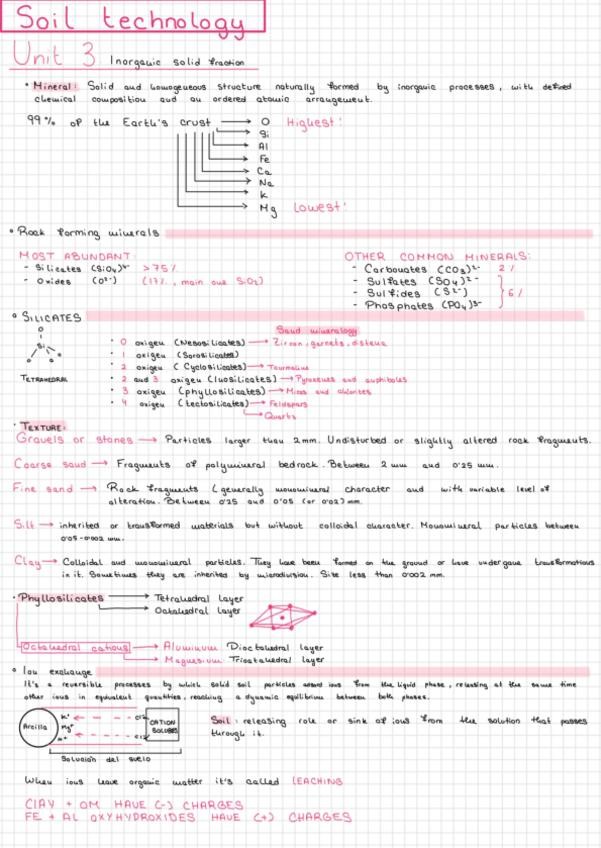 Soil technology
Unit 3 Inorganic solid fraction
• Mineral: Solid and homogeneous structure naturally formed by inorganic processes, with defined
chemical composition and an ordered atomic arrangement.
99% of the Earth's crust → O Highest!
Si
Al
Fe
Ca
Na
K
Mg Lowest!
• Rock forming minerals
MOST ABUNDANT:
- Silicates (SiO4)4- >75%
- Oxides (O2-) (17%, main one SiO2)
OTHER COMMON MINERALS:
- Carbonates (CO3)2- 2%
- Sulfates (SO4)2-
- Sulfides (S2-) 6%
- Phosphates (PO4)3-
• SILICATES
O
Si
O O O
TETRAHEDRAL
Sand mineralogy
• 0 oxigen (Nesosilicates) → Zircon, garnets, distena
• 1 oxigen (Sorosilicates)
• 2 oxigen (Cyclosilicates) → Tourmaline
• 2 and 3 oxigen (Inosilicates) → Pyroxenes and amphiboles
• 3 oxigen (phyllosilicates) → Micas and chlorites
• 4 oxigen (tectosilicates) → Feldspars
→ Quartz
• TEXTURE:
Gravels or stones → Particles larger than 2mm. Undisturbed or slightly altered rock fragments.
Coarse sand → Fragments of polymineral bedrock. Between 2 mm and 0'25 mm.
Fine sand → Rock fragments (generally monomineral character and with variable level of
alteration. Between 0'25 and 0'05 (or 0'02) mm.
Silt → inherited or transformed materials but without colloidal character. Monomineral particles between
0'05 - 0'002 mm.
Clay → Colloidal and monomineral particles. They have been formed on the ground or have undergone transformations
in it. Sometimes they are inherited by microdivision. Size less than 0'002 mm.
• Phyllosilicates → Tetrahedral layer
→ Octahedral layer
Octahedral cations → Aluminum Dioctahedral layer
→ Magnesium Trioctahedral layer
• Ion exchange
It's a reversible processes by which solid soil particles adsorb ions from the liquid phase, releasing at the same time
other ions in equivalent quantities, reaching a dynamic equilibrium between both phases.
Arcilla
K+
Mg2+
CATION
SOLUBLES
Solución del suelo
Soil: releasing role or sink of ions from the solution that passes
through it.
When ions leave organic matter it's called LEACHING
CLAY + OM HAVE (-) CHARGES
FE + AL OXYHYDROXIDES HAVE (+) CHARGES